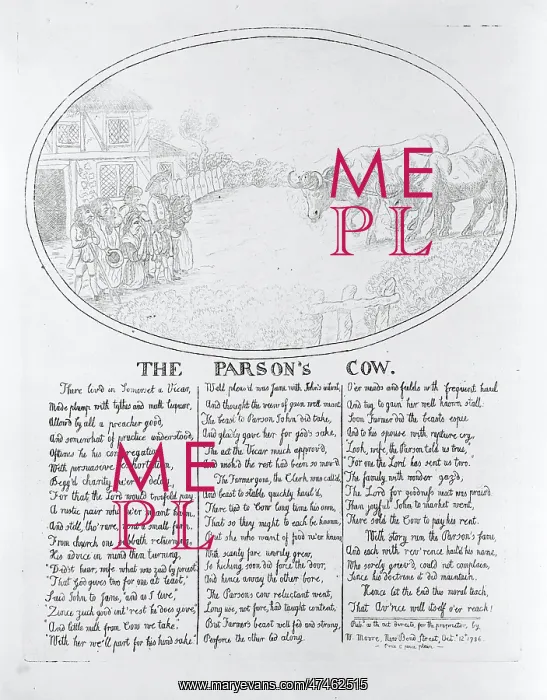 ME
PL
THE PARSON's COW.
There liv'd in Somerset a Vicar,
Made plump with tythes and malt liquor,
Allow'd by all a preacher good,
And somewhat of practice understood,
Oftimes he his congregation
With persuasive
Begg'd charity
For that the Lord would twofold pay
A rustic pair
And still, tho' rare, a small farm,
From church one returning,
His advice in mind then turning,
"Did'st hear, wife what was said by priest,
"That God gives two for one at least,"
Said John to Jane, "and as I live,"
"Since such good int'rest he does give,
"And little milk from Cow we take,
"With her we'll part for his hind sake."
Well pleas'd was Jane with John's intent,
And thought the view of gain well meant
The beast to Parson John did take,
And gladly gave her for god's sake,
The act the Vicar much approv'd,
And wish'd the rest had been so mov'd
The Farmer gone, the Clerk was call'd
And beast to stable quickly haul'd,
There tied to Cow long time his own,
That so they might to each be known,
But she who want of food ne'er knew
With scanty fare unruly grew,
So kicking soon did force the door,
And hence away the other bore,
The Parsons cow reluctant went,
Long use, not fare, had taught content,
But Farmer's beast well fed and strong,
Perforce the other led along
O'er meads and fields with frequent haul
And tug to gain her well known stall
Soon Farmer did the beasts espie
And to his spouse with rapture cry,
"Look, wife, the Parson told us true,
"For one the Lord has sent us two.
The family with wonder gaz'd,
The Lord for goodness next was prais'd
Then joyful John to market went,
There sold the Cow to pay his rent.
With story rung the Parson's fame,
And each with rev'rence hail'd his name,
Who sorely griev'd, could not complain,
Since his doctrine it did maintain.
Hence let the End this moral teach,
That Av'rice will itself o'er reach!
Pub'd as the act directs, for the proprietor, by
W. Moore, New Bond Street, Oct. 12 1786.
ME
PL
www.maryevans.com/47462515